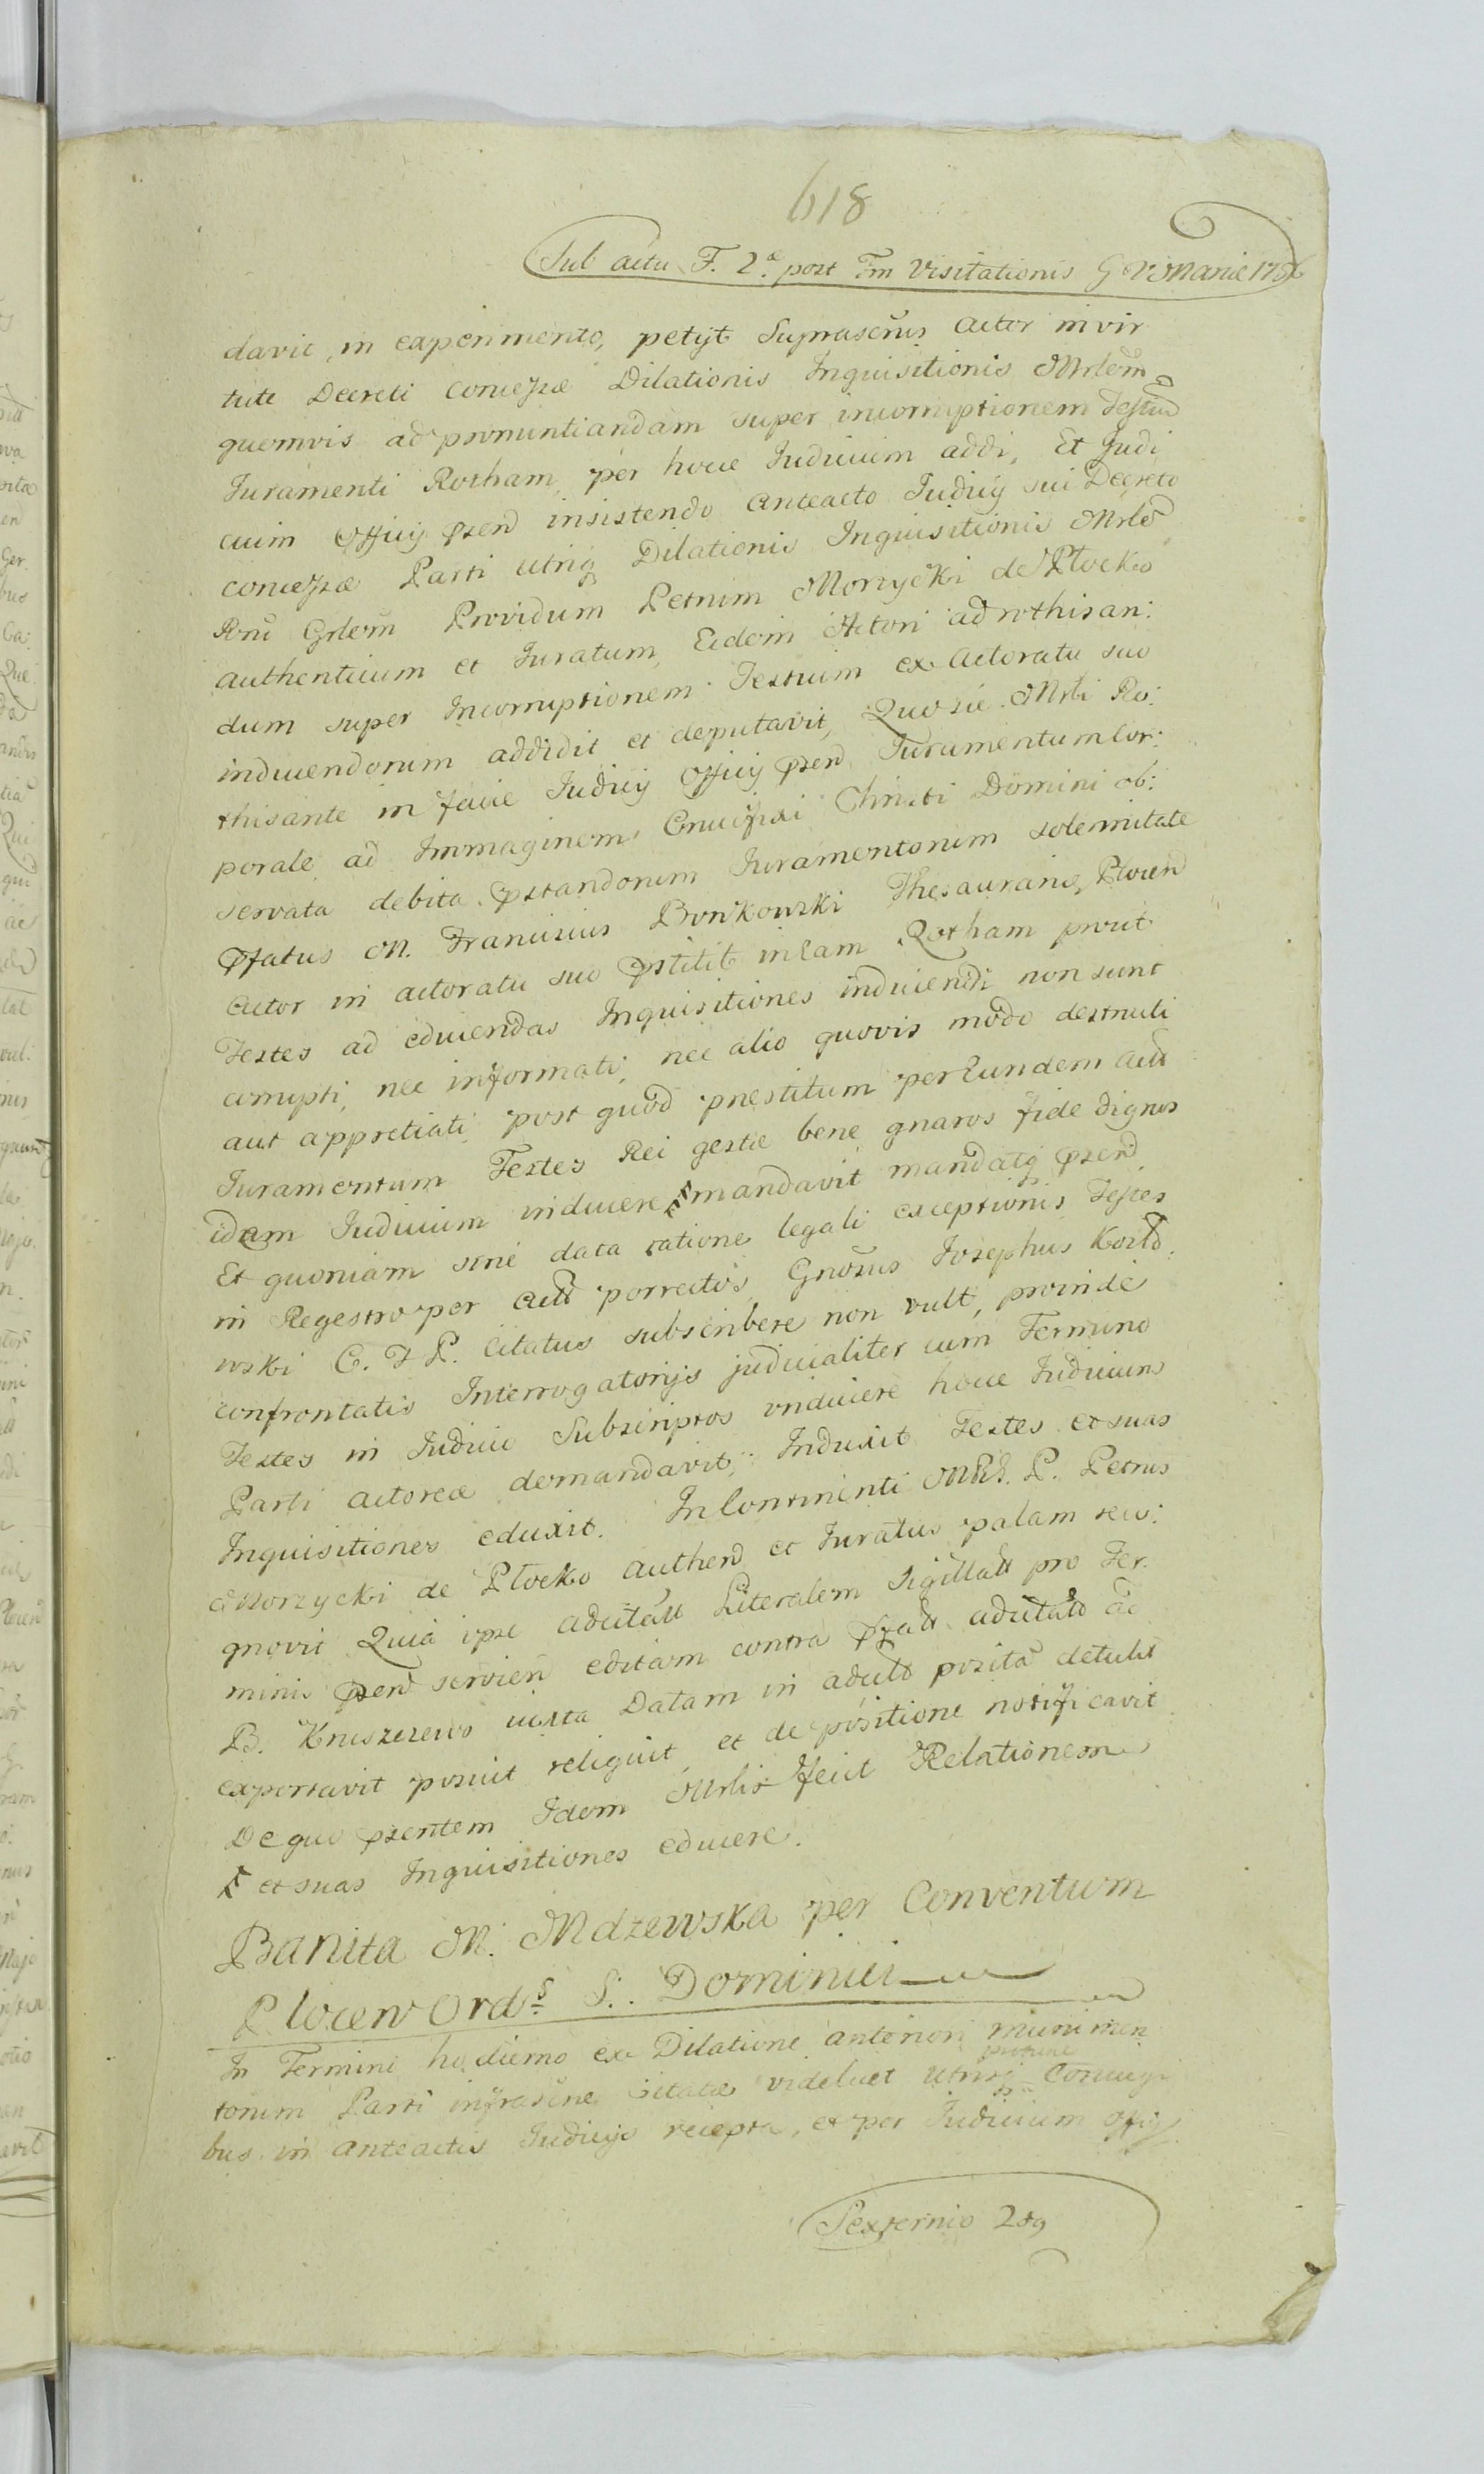 618
Sub actu F. 2ª post Fm Visitationis G V Mariæ
davit, in experimento, petijt Suprascrius Actor in vir
tute Decreti concessæ Dilationis Inquisitionis Mrlem
quemvis ad pronuntiandam super incorruptionem Testiũ
Juramenti Rotham per hocce Judicium addi, Et Judi
cium Officij prñ insistendo anteacto Judicij sui Decreto
concessæ Parti utriq Dilationis Inquisitionis Mrlẽ
Rnũ Grlem Providum Petrum Morzycki de Płocko
authenticum et Juratum, Eidem Actori ad rothisan:
dum super Incorruptionem Testium ex Actoratu suo
inducendorum addidit et deputavit, Quo sic Mrli Ro:
thisante in facie Judicij Officij prñ Juramentum Cor:
porale ad Immaginem Crucifixi Christi Domini ob:
servata debita pstandorum Juramentorum solemnitate
Pfatus M. Franciscus Bonkowski Thesaurarius Plocen
Actor in actoratu suo pstitit in eam Rotham prout
Testes ad educendas Inquisitiones inducendi non sunt
corrupti, nec informati, nec alio quovis modo destructi
aut appretiati, post quod præstitum per Eundem Act
Juramentum Testes Rei gestæ bene gnaros fide dignos
idem Judicium inducere mandavit mandatq prñ
Et quoniam sine data ratione legali exceptionis Testes
in Regestro per Act porrectos, Gnosus Josephus Kozło
wski C. T P. Citatus subscribere non vult, proinde
confrontatis Interrogatorijs judicialiter cum Termino
Testes in Judicio Subscriptos inducere hocce Judicium
Parti actoreæ demandavit; Induxit Testes et suas
Inquisitiones eduxit. In Continenti P. Petrus
Morzycki de Płocko authen et Juratus palam reco:
gnovit Quia ipse adcitatt Literalem Sigillatt pro Ter:
minis prñ servien editam contra adcitato ad
B. Kruszczewo iuxta Datam in adcito posita detulit
exportavit posuit reliquit, et de positione notificavit
De quo præsentem Idem Mrlis fecit Relationem
et suas Inquisitiones educere.
Banita M. Mdzewska per Conventum
Plocen Ords S. Dominici
In Termini hodierno ex Dilatione anteriori munimen
torum Parti infrascne citatæ videlicet utrisq Coniugi
bus in anteactis Judicijs recepta, et per Judicium officij
Sexternio 2do